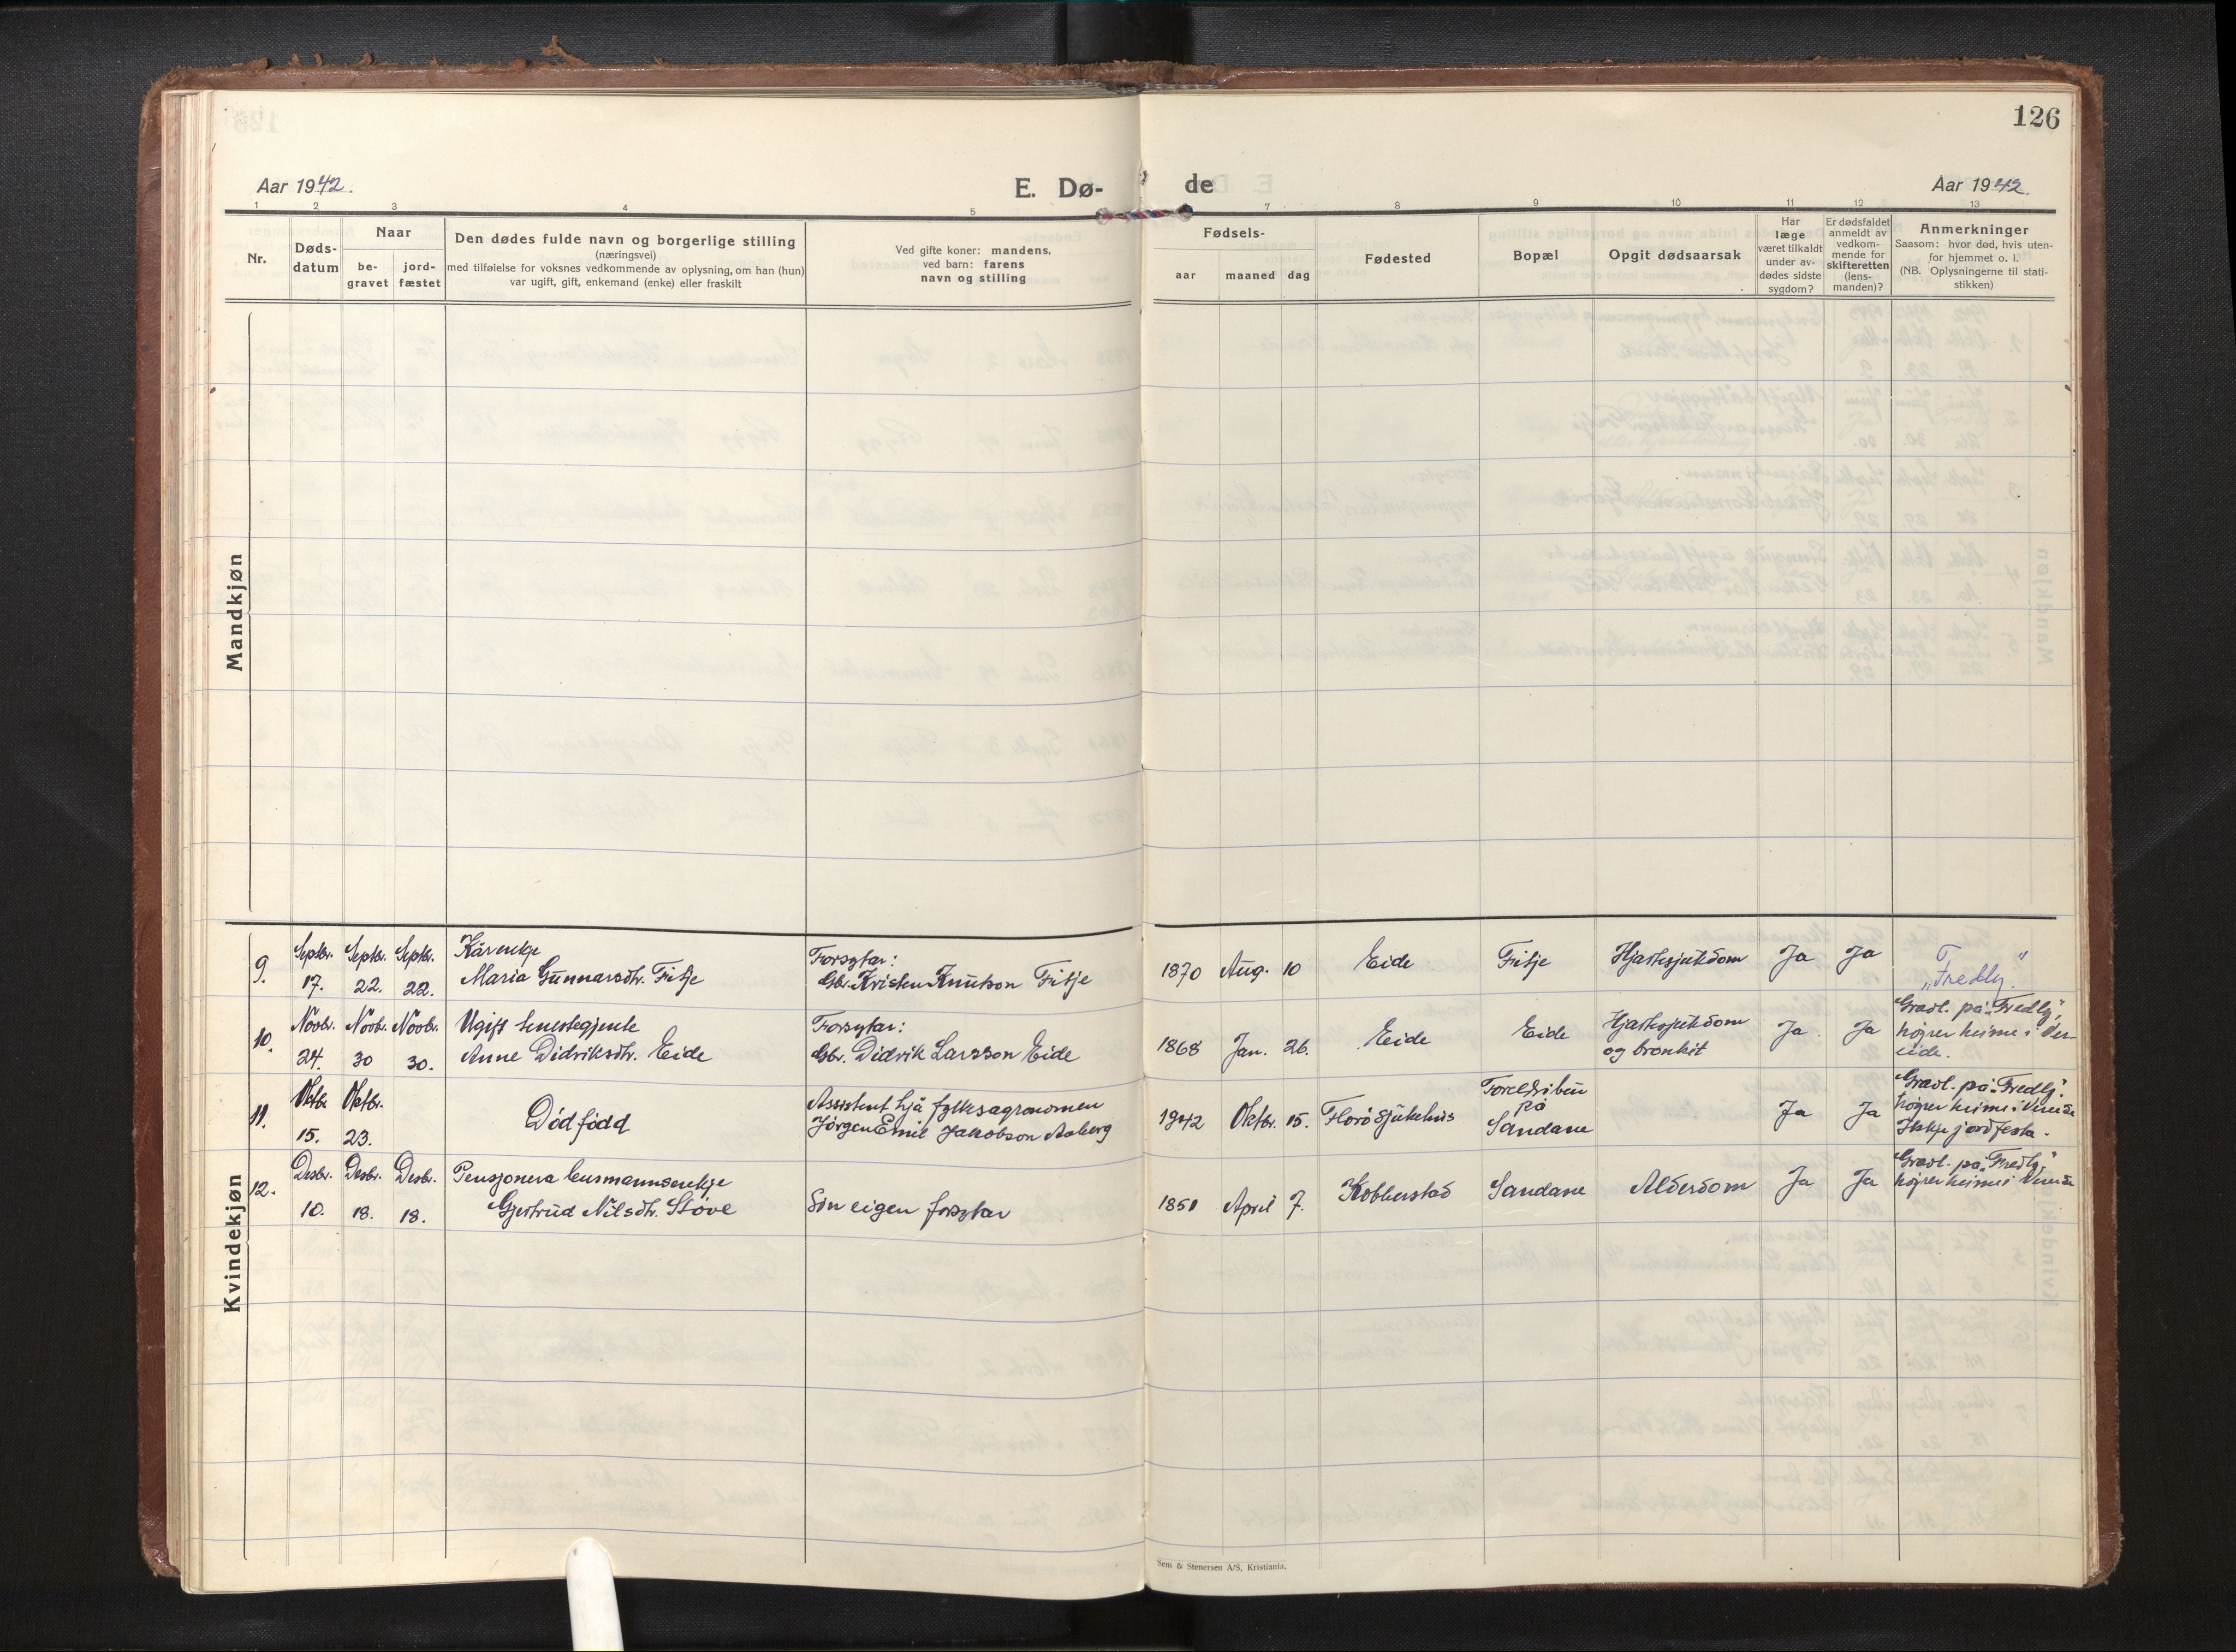 126
Aar 1942.
E. Dø-
de
Aar 1942.
1 2 3 4 5 7 8 9 10 11 12 13
Nr.
Døds-
datum
Naar
be-
gravet
jord-
fæstet
Den dødes fulde navn og borgerlige stilling
(næringsvei)
med tilføielse for voksnes vedkommende av oplysning, om han (hun)
var ugift, gift, enkemand (enke) eller fraskilt
Ved gifte koner: mandens,
ved barn: farens
navn og stilling
Fødsels-
aar maaned dag
Fødested
Bopæl
Opgit dødsaarsak
Har
læge
været tilkaldt
under av-
dødes sidste
sygdom?
Er dødsfaldet
anmeldt av
vedkom-
mende for
skifteretten
(lens-
manden)?
Anmerkninger
Saasom: hvor død, hvis uten-
for hjemmet o. l.
(NB. Oplysningerne til stati-
stikken)
Mandkjøn
Kvindekjøn
9.
Septbr. 17.
Septbr. 22.
Septbr. 22.
Kårenkje
Maria Gunnarsdtr. Fitje
Forsytar:
Gbr. Kristen Knutson Fitje
1870 Aug. 10
Eide
Fitje
Hjartesjukdom
Ja
Ja
„Fredly."
10.
Novbr. 24.
Novbr. 30
Novbr. 30.
Ugift tenestegjente
Anne Didriksdtr. Eide
Forsytar:
Gbr. Didrik Larsson Eide
1868 Jan. 26.
Eide
Eide
Hjartesjukdom
og bronkit
Ja
Ja
Gravl. på „Fredly",
høyrer heime i Ver-
eide.
11.
Oktbr. 15.
Oktbr. 23.
Død fødd
Assistent hjå fylksagronomen
Jørgen Emil Jakobson Aaberg
1942 Oktbr. 15.
Florø Sjukehus
Foreldri bur
på
Sandane
Ja
Ja
Gravl. på „Fredly"
høyrer heime i Vereide
Ikkje jordfesta.
12.
Desbr. 10.
Desbr. 18.
Desbr. 18.
Pensjonera lensmannsenkje
Gjertrud Nilsdtr. Støve
Sin eigen forsytar
1851 April 7.
Kobberstad
Sandane
Alderdom
Ja
Ja
Gravl. på „Fredly"
høyrer heime i Vereide
Sem & Stenersen A/S, Kristiania.